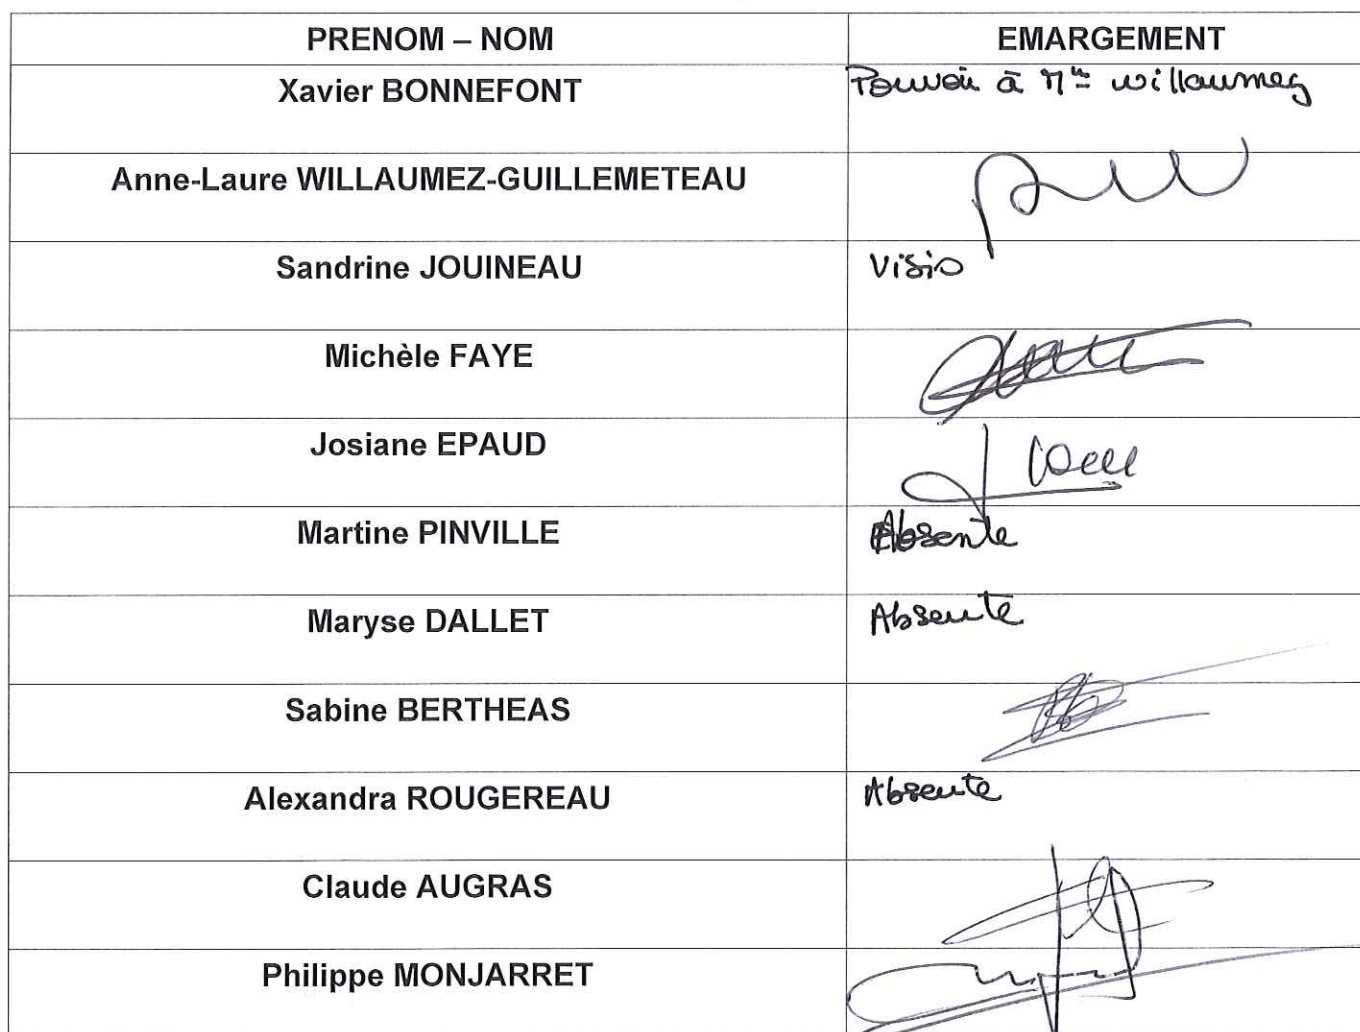 PRENOM – NOM EMARGEMENT
Xavier BONNEFONT Pouvoir à Mme Willaumez
Anne-Laure WILLAUMEZ-GUILLEMETEAU
Sandrine JOUINEAU Visio
Michèle FAYE
Josiane EPAUD
Martine PINVILLE Absente
Maryse DALLET Absente
Sabine BERTHEAS
Alexandra ROUGEREAU Absente
Claude AUGRAS
Philippe MONJARRET